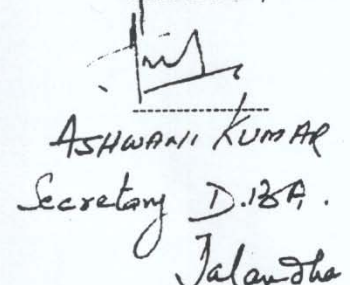 ASHWANI KUMAR
Secretary D.B.A.
Jalandha